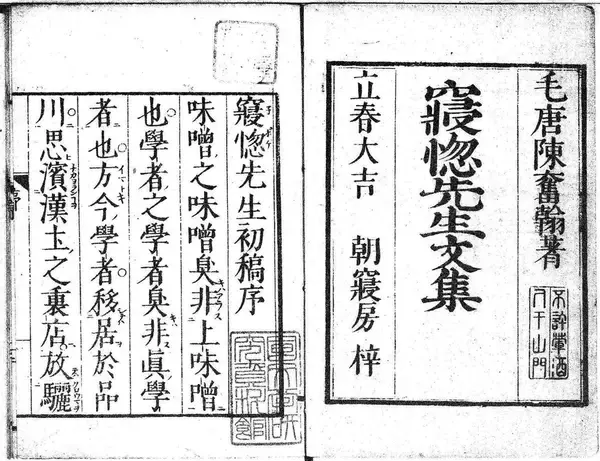 毛唐陳奮翰著
不許葷酒
入于山門
寢惚先生文集
立春大吉 朝寢房 梓
寢惚先生初稿序
味噌之味噌臭非上味噌
也學者之學者臭非眞學
者也方今學者移居於品
川思濱漢土之裏店放驪